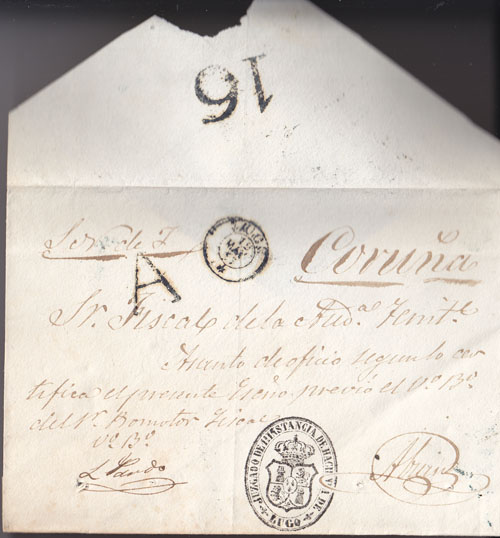 16
LUGO
Coruña
A
Sr. Fiscal de la Aud.al Territ.l
Asunto de oficio segun lo cer
tifica el presente Esc.no, previo el Vo. Bo.
del Sr. Promotor Fiscal
Vo. Bo.
JUZGADO DE 1ª INSTANCIA DE HACIENDA DE LUGO